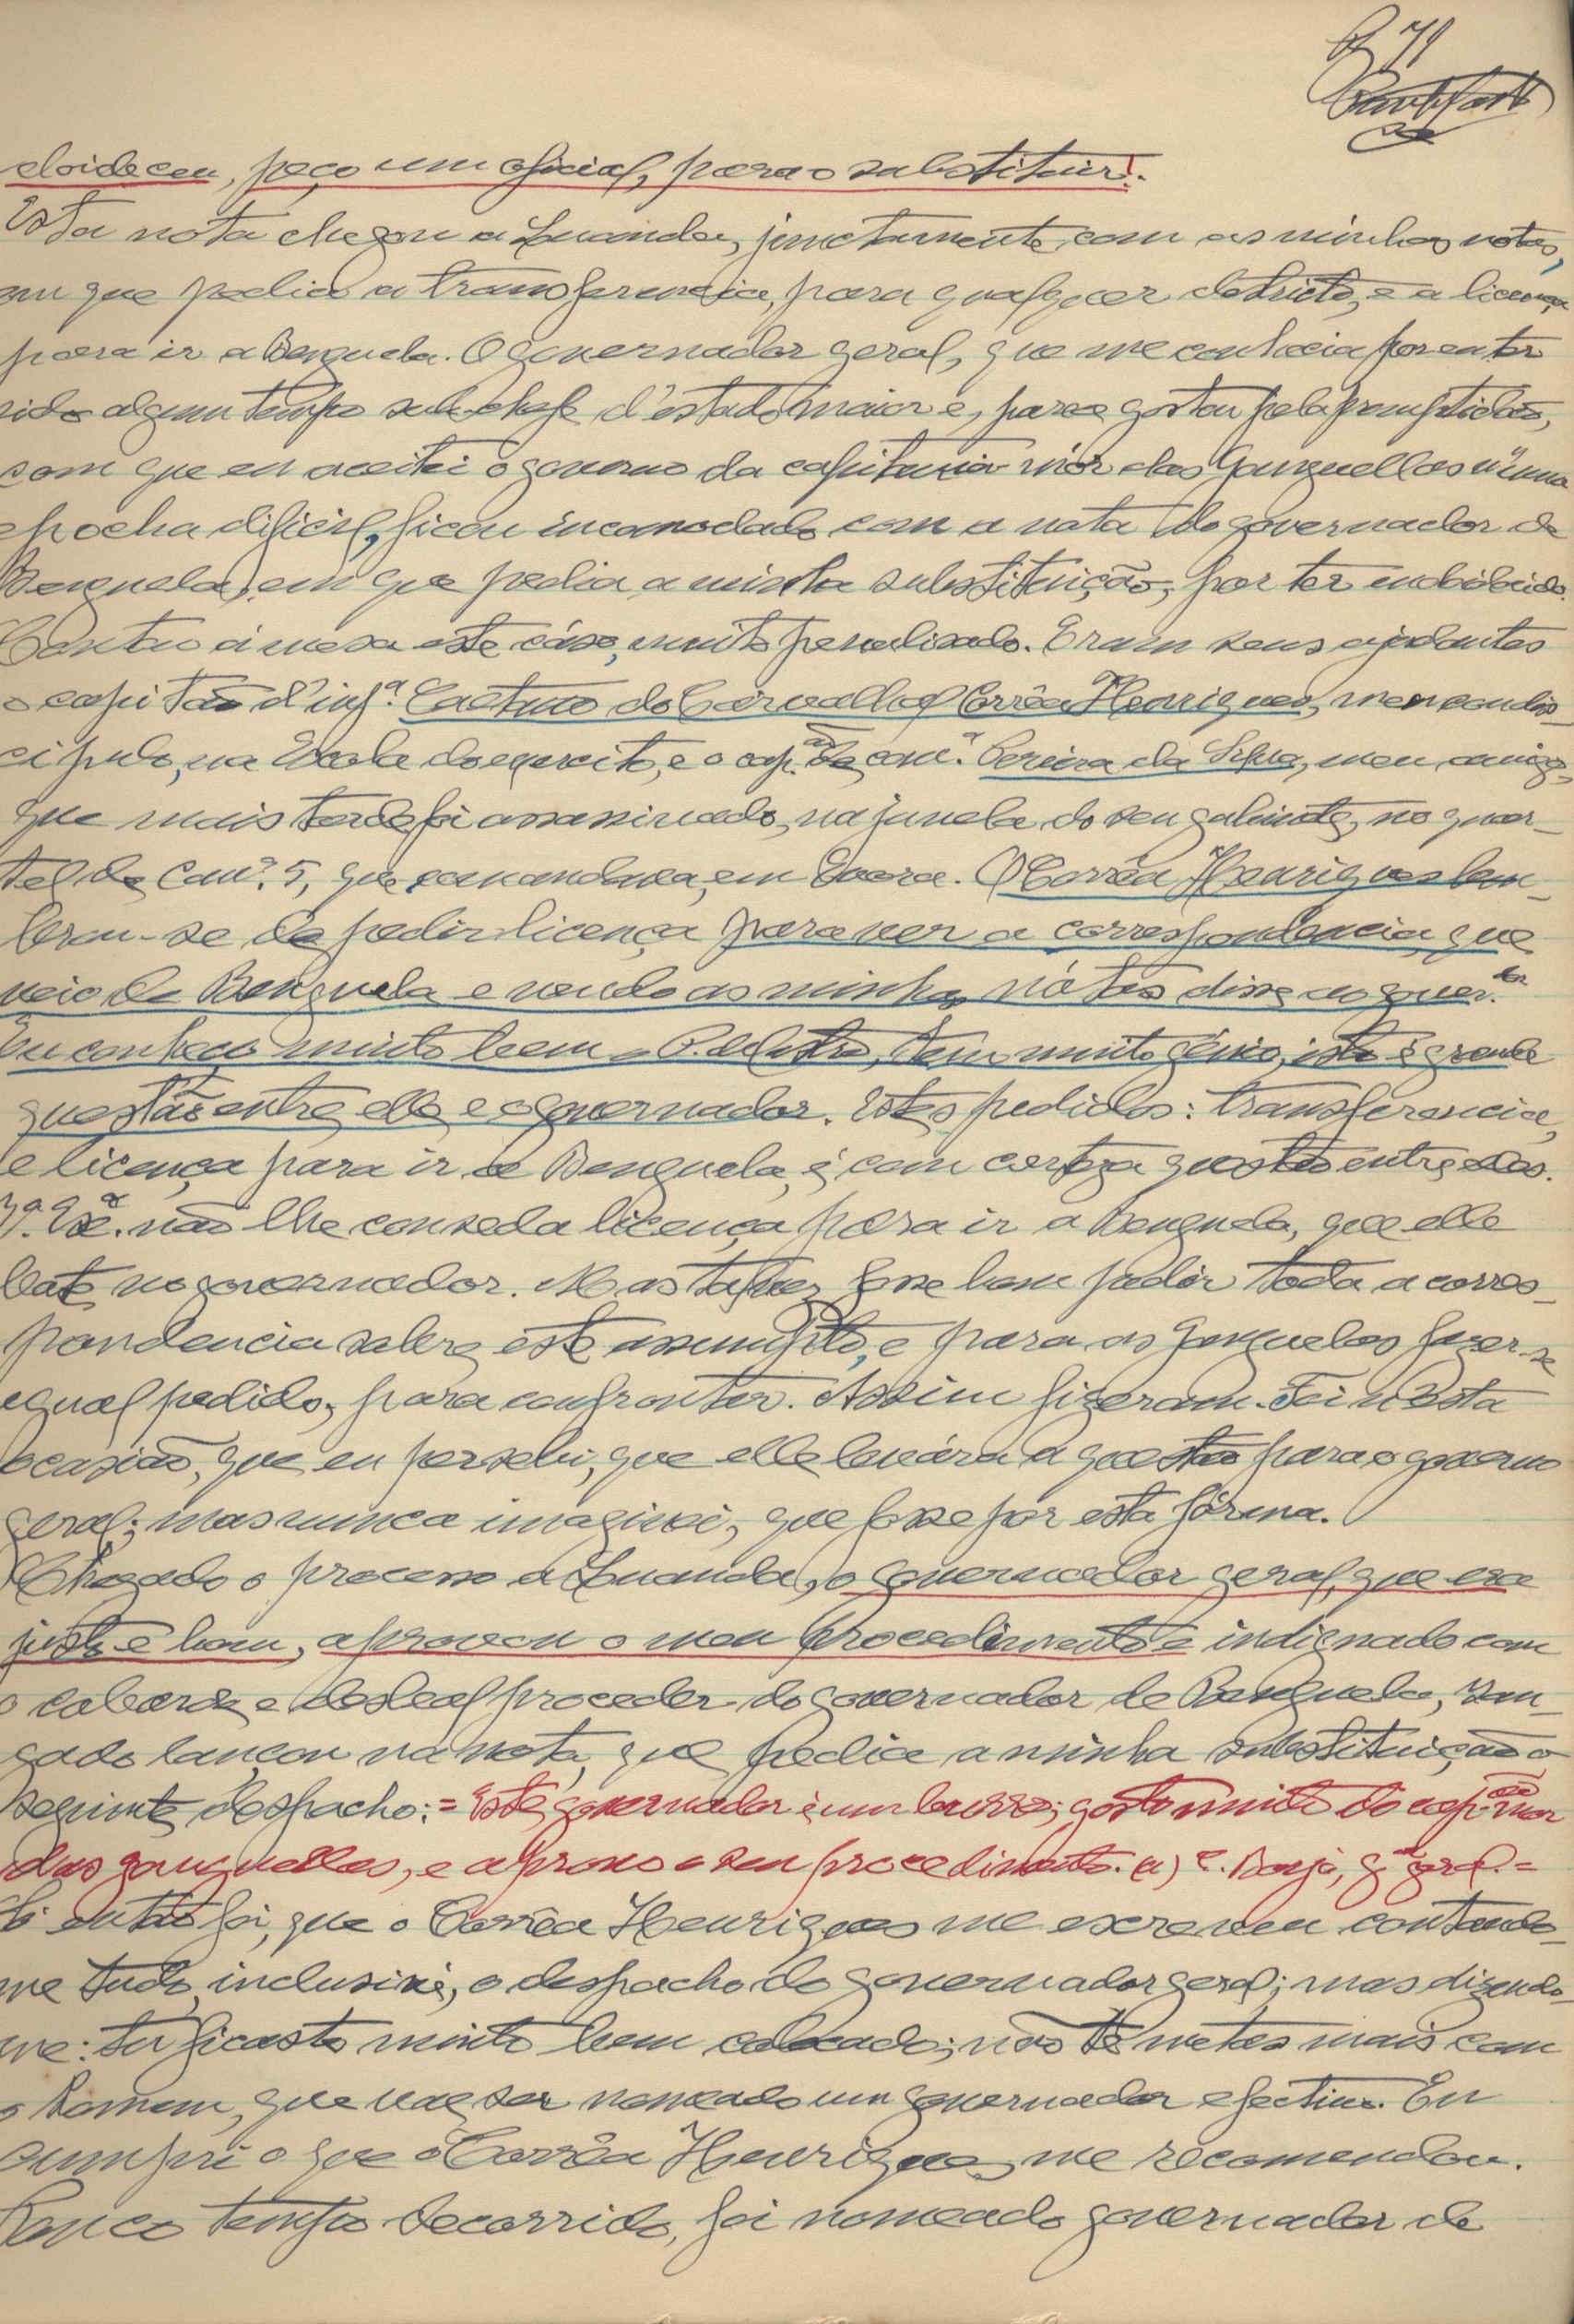 71
doideceu, peço um oficial, para o substituir!
Esta nota chegou a Luanda, junctamente com as minhas notas,
em que pedia a transferencia, para qualquer districto, e a licença
para ir a Benguela. O governador geral, que me conhecia por eu ter
sido algum tempo sub-chefe d'estado maior e, parece gostou pela promptidão,
com que eu aceitei o governo da capitania-mór dos Ganguellas n'uma
epocha dificil, ficou incomodado com a nota do governador de
Benguela, em que pedia a minha substituição, por ter endoidecido.
Contou á mesa este cáso, muito penalisado. Eram seus ajudantes
o capitão d'inf.ª Caetano do Carvalhal Corrêa Henriques, meu condis-
cipulo, na Escola do exercito, e o cap.ão de cav.ª Pereira da Silva, meu amigo,
que mais tarde foi assassinado, na janela do seu gabinete, no quar-
tel de Cav.ª 5, que comandava, em Evora. O Corrêa Henriques lem-
brou-se de pedir licença para ver a correspondencia, que
veio de Benguela e vendo as minhas nótas disse ao gover.dor
Eu conheço muito bem o P. de Castro, tem muito génio, isto é grande
questão entre elle e o governador. Estes pedidos: transferencia,
e licença para ir a Benguela, é com certeza questão entre elles.
V.ª Ex.ª não lhe conseda licença para ir a Benguela, que elle
bate no governador. Mas talvez fosse bom pedir toda a corres-
pondencia sobre este assumpto, e para os Ganguelas fazer-se
egual pedido, para confrontar. Assim fizeram. Foi n'esta
ocasião, que eu persebi, que elle levára a questão para o governo
geral; mas nunca imaginei, que fosse por esta fórma.
Chegado o processo a Luanda, o governador geral, que era
justo e bom, aprovou o meu procedimento e indignado com
o cobarde e desleal proceder do governador de Benguela, zan-
gado lançou na nota, que pedia a minha substituição o
seguinte despacho: = Este governador é um burro; gosto muito do cap.ão mór
dos ganguellas, e aprovo o seu procedimento. (a) E. Borja, g.or geral. =
Só então foi, que o Corrêa Henriques me escreveu contando-
me tudo, inclusivé, o despacho do governador geral; mas dizendo-
me: tu ficaste muito bem colocado; não te metas mais com
o homem, que vae ser nomeado um governador efectivo. Eu
cumpri o que o Corrêa Henriques me recomendou.
Pouco tempo decorrido, foi nomeado governador de